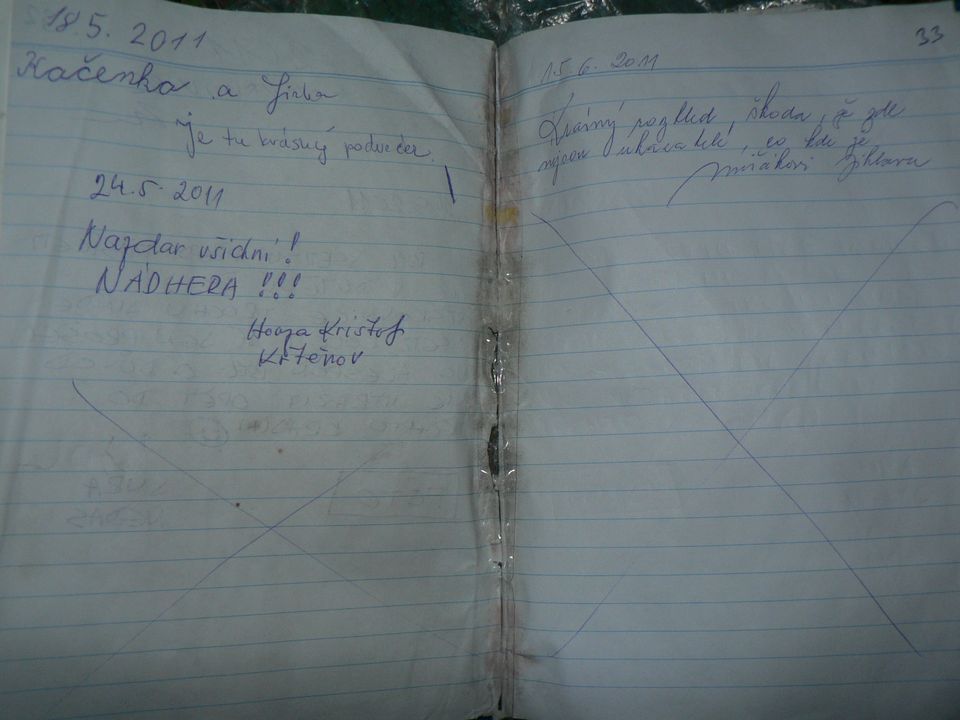 18.5. 2011
Kačenka a Jirka
Je tu krásný podvečer.
24.5. 2011
Nazdar všichni!
NÁDHERA !!!
Honza Kristof
Křtěnov
33
15. 6. 2011
Krásný rozhled, škoda, že zde
nejsou ukazatelé, co kde je
Jihlava